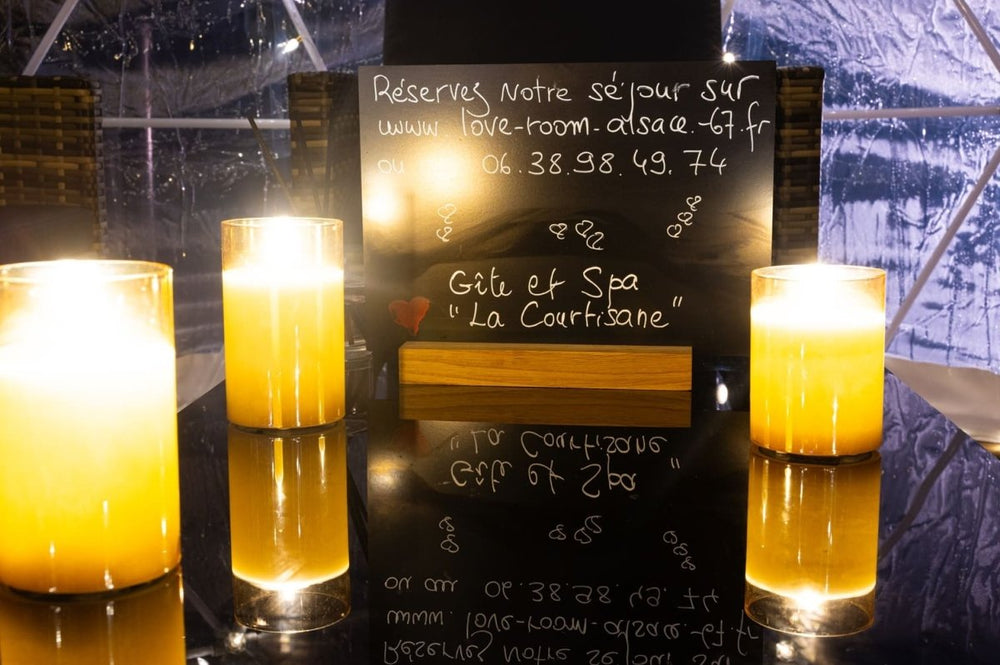 Réservez Notre séjour sur
www love-room-alsace-67.fr
ou 06.38.98.49.74
Gîte et Spa
"La Courtisane"